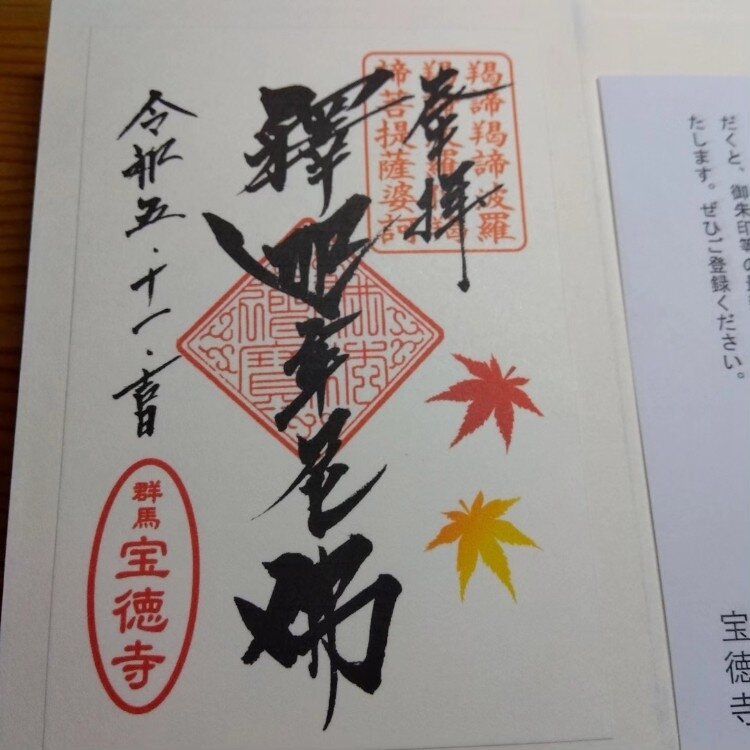 羯諦羯諦波羅
羯諦波羅僧羯
諦菩提薩婆訶
奉拝
釋迦牟尼佛
令和五・十一・吉日
群馬
宝徳寺
だくと、御朱印等の
たします。ぜひご登録ください。
宝徳寺